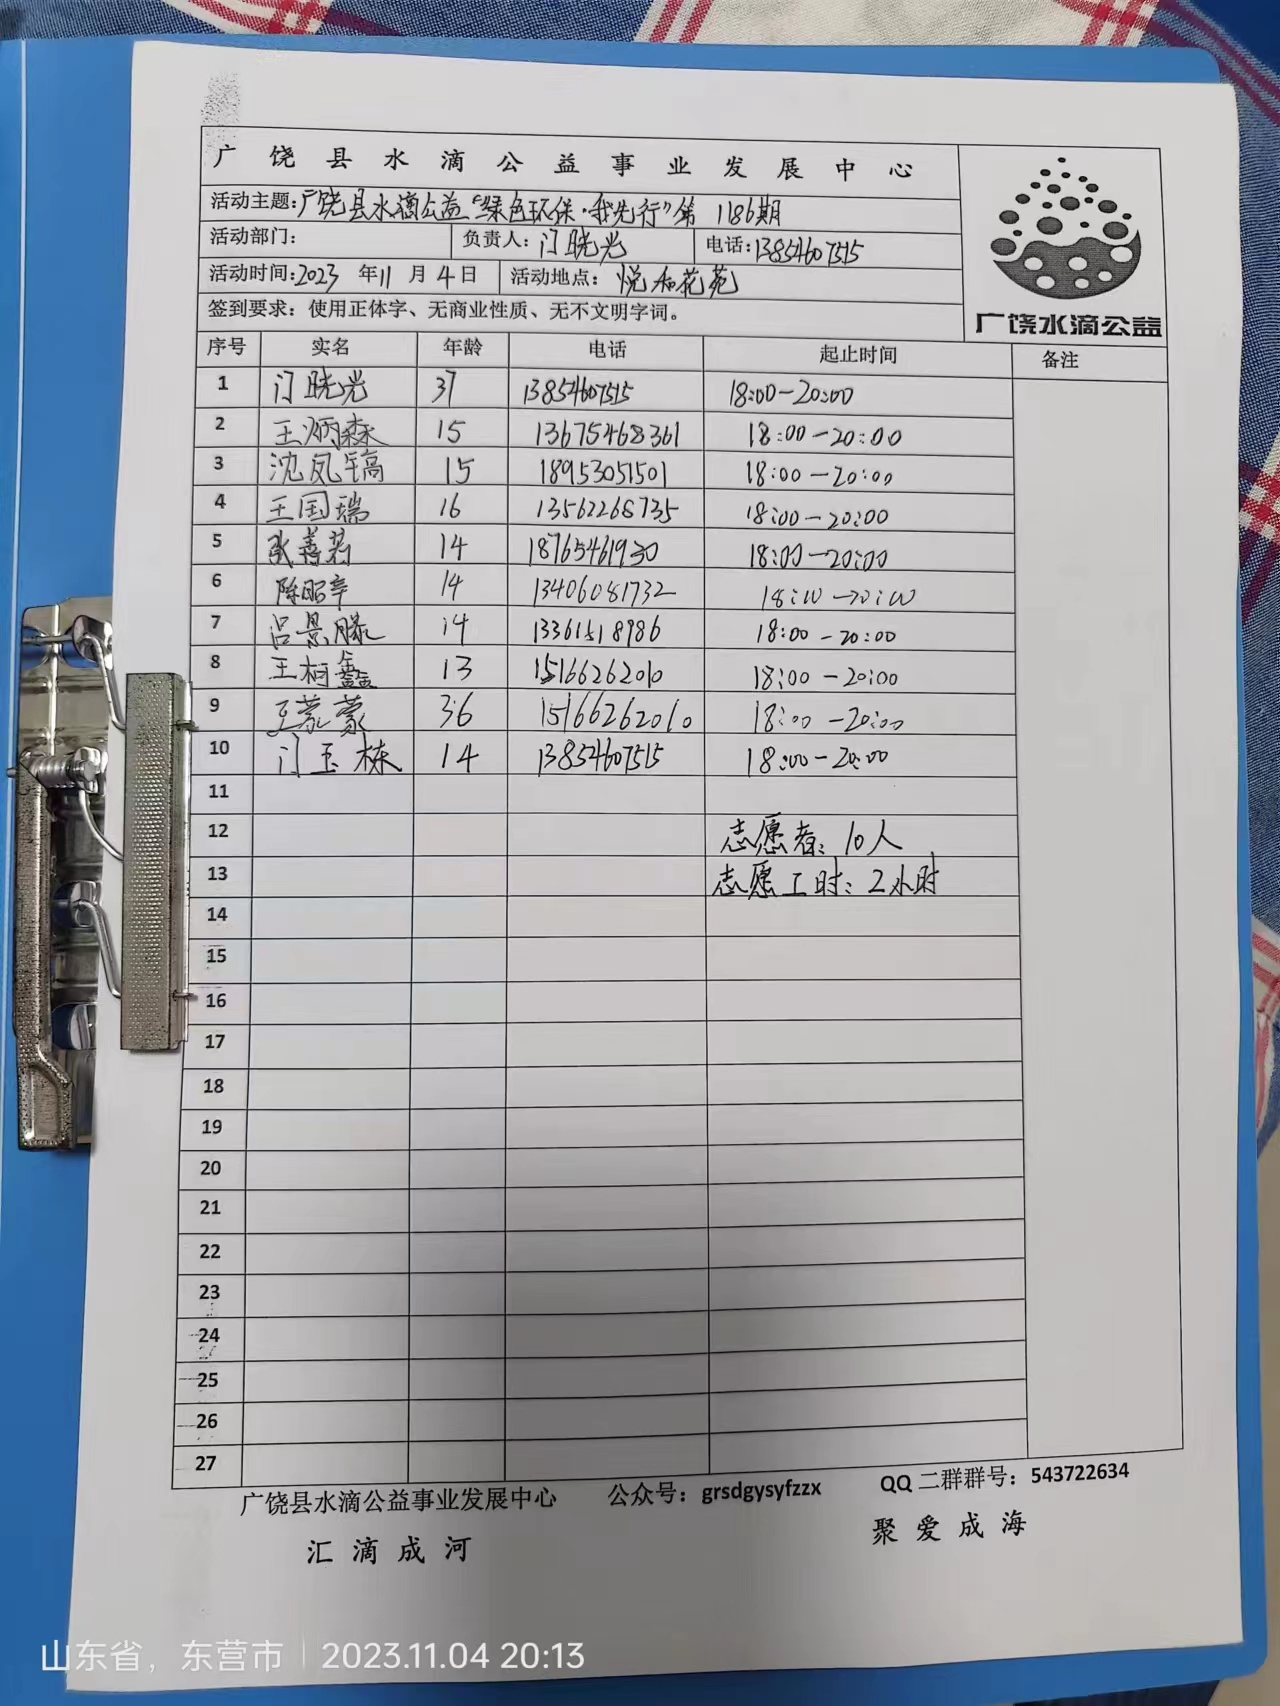 广饶县水滴公益事业发展中心
活动主题:广饶县水滴公益“绿色环保·我先行”第 1186期
活动部门: 负责人: 门晓光 电话:13854607515
活动时间:2023 年11 月 4 日 活动地点: 悦和花苑
签到要求: 使用正体字、无商业性质、无不文明字词。
广饶水滴公益
序号 实名 年龄 电话 起止时间 备注
1 门晓光 37 13854607515 18:00-20:00
2 王炳森 15 13675468361 18:00-20:00
3 沈凤镐 15 18953051501 18:00-20:00
4 王国瑞 16 13562268735 18:00-20:00
5 张善若 14 18765461930 18:00-20:00
6 陈昭辛 14 13406081732 18:00-20:00
7 吕景滕 14 13361518986 18:00-20:00
8 王柯鑫 13 15166262010 18:00-20:00
9 王蒙蒙 36 15166262010 18:00-20:00
10 门玉栋 14 13854607515 18:00-20:00
11
12 志愿者: 10人
13 志愿工时: 2小时
14
15
16
17
18
19
20
21
22
23
24
25
26
27
广饶县水滴公益事业发展中心 公众号: grsdgysyfzzx QQ二群群号: 543722634
汇滴成河 聚爱成海
山东省, 东营市 | 2023.11.04 20:13